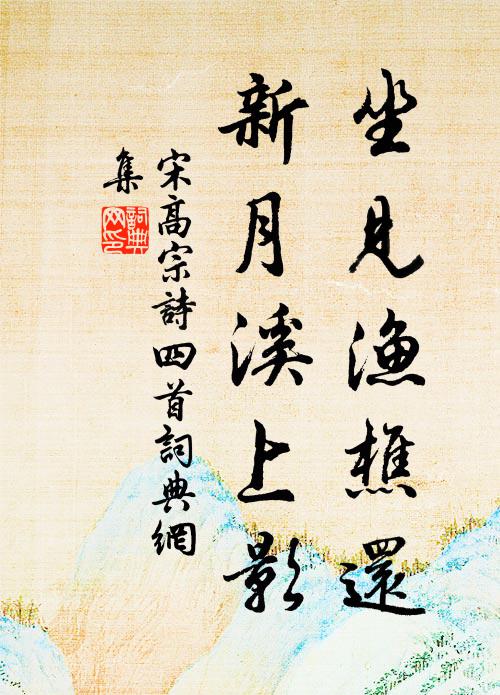 坐見漁樵還
新月溪上影
宋高宗詩四首詞典網
集
詞典網印